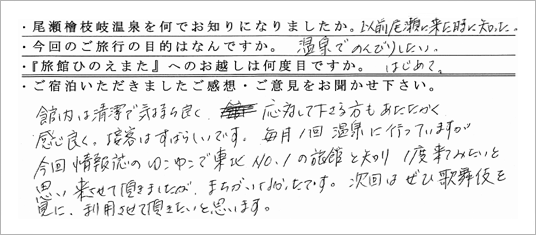 ・尾瀬檜枝岐温泉を何でお知りになりましたか。以前尾瀬に来た時に知った。
・今回のご旅行の目的はなんですか。 温泉でのんびりしたい。
・『旅館ひのえまた』へのお越しは何度目ですか。 はじめて。
・ご宿泊いただきましたご感想・ご意見をお聞かせ下さい。
館内は清潔で気持ち良く、応対して下さる方もあたたかく
感じ良く、接客はすばらしいです。毎月1回温泉に行っていますが
今回情報誌のゆこゆこで東北NO.1の旅館と知り 1度来てみたいと
思い来させて頂きましたが、まちがいなかったです。次回はぜひ歌舞伎を
見に、利用させて頂きたいと思います。